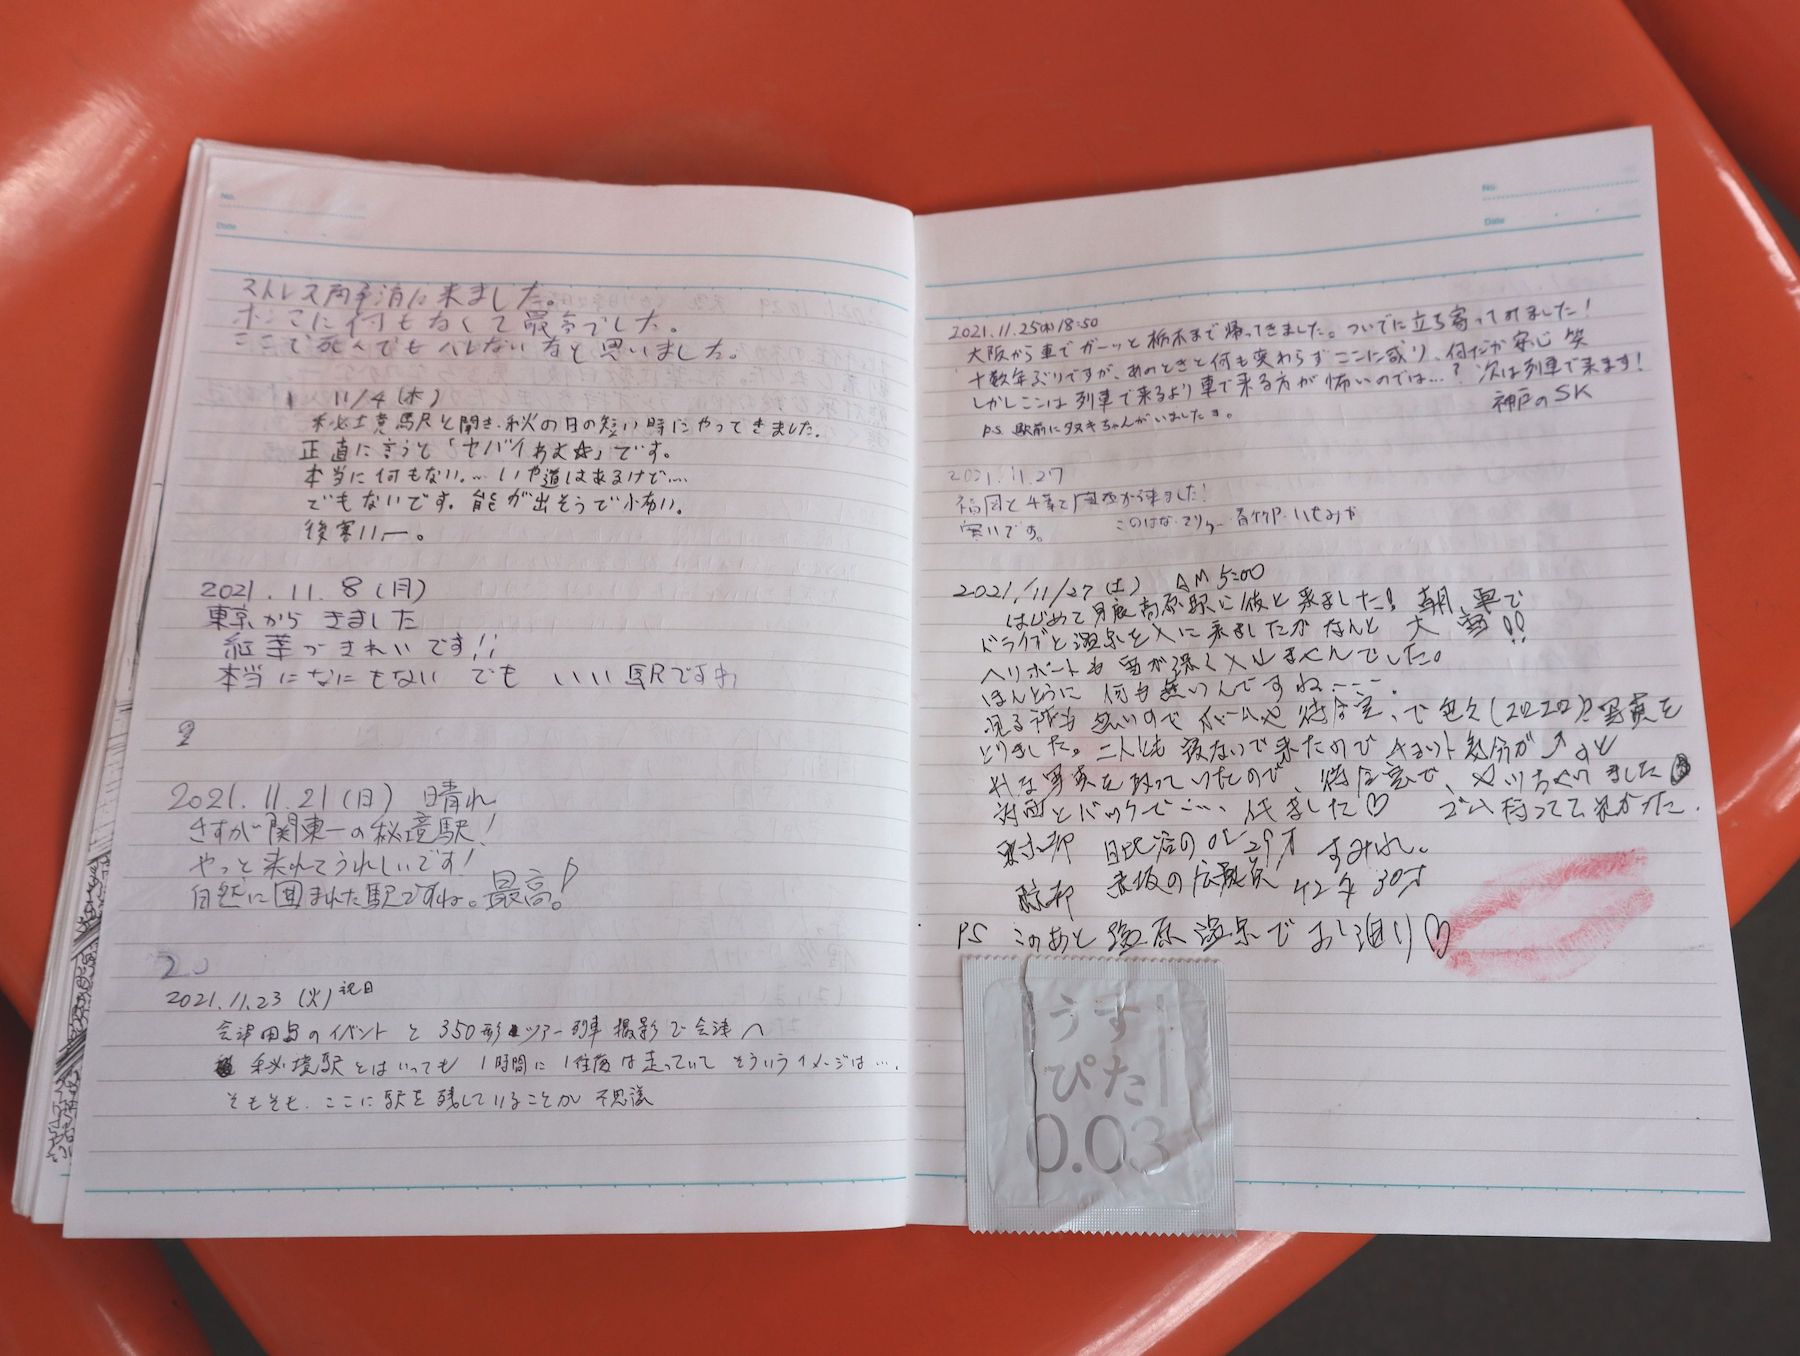 No.
Date
ストレス解消に来ました。
ホントに何もなくて最高でした。
ここで死んでもバレないなと思いました。
11/4(木)
秘境駅と聞き、秋の日の短い時にやってきました。
正直に言うと「ヤバイわよ☆」です。
本当に何もない。… いや道はあるけど….
でもないです。熊が出そうで怖い。
後寒いー。
2021.11.8(月)
東京から きました
紅葉がきれいです!!
本当になにもない でも いい駅ですね
2
2021.11.21(日) 晴れ
さすが関東一の秘境駅!
やっと来れてうれしいです!
自然に囲まれた駅ですね。最高!♪
20
2021.11.23(火)祝日
会津田島のイベント と 350形 ツアー列車 撮影で会津へ
秘境駅とはいっても 1時間に1往復は走っていて そういうイメージは….
そもそも、ここに駅を残していることが 不思議
No.
Date
2021.11.25(木)18:50
大阪から車でガーッと栃木まで帰ってきました。ついでに立ち寄ってみました!
十数年ぶりですが、あのときと何も変わらずここに或り、何だか安心 笑
しかしここは列車で来るより車で来る方が怖いのでは…? 次は列車で来ます!
神戸のSK
PS. 駅前にタヌキちゃんがいましたョ。
2021.11.27
福岡と千葉と から来ました!
寒いです。 このはな
2021/11/27(土) AM 5:00
はじめて男鹿高原駅に彼と来ました! 朝 車で
ドライブと温泉を入に来ましたがなんと 大 雪!!
ヘリポートも雪が深く入れませんでした。
ほんとうに 何も無いんですね…-.
見る所も 無いのでホームや 待合室、で色々(2020)と写真を
とりました。二人とも 寝ないで来たのでチョット気分が↗ ↗と
な写真を取っていたので、待合室で、やっちゃいました
対面とバックで…、イキました♡ ゴム持ってて良かった.
東京都 日比谷のOL 29才 すみれ。
東京都 赤坂の広報員 30才
PS このあと 塩原温泉で お泊り♡
うす
ぴた
0.03